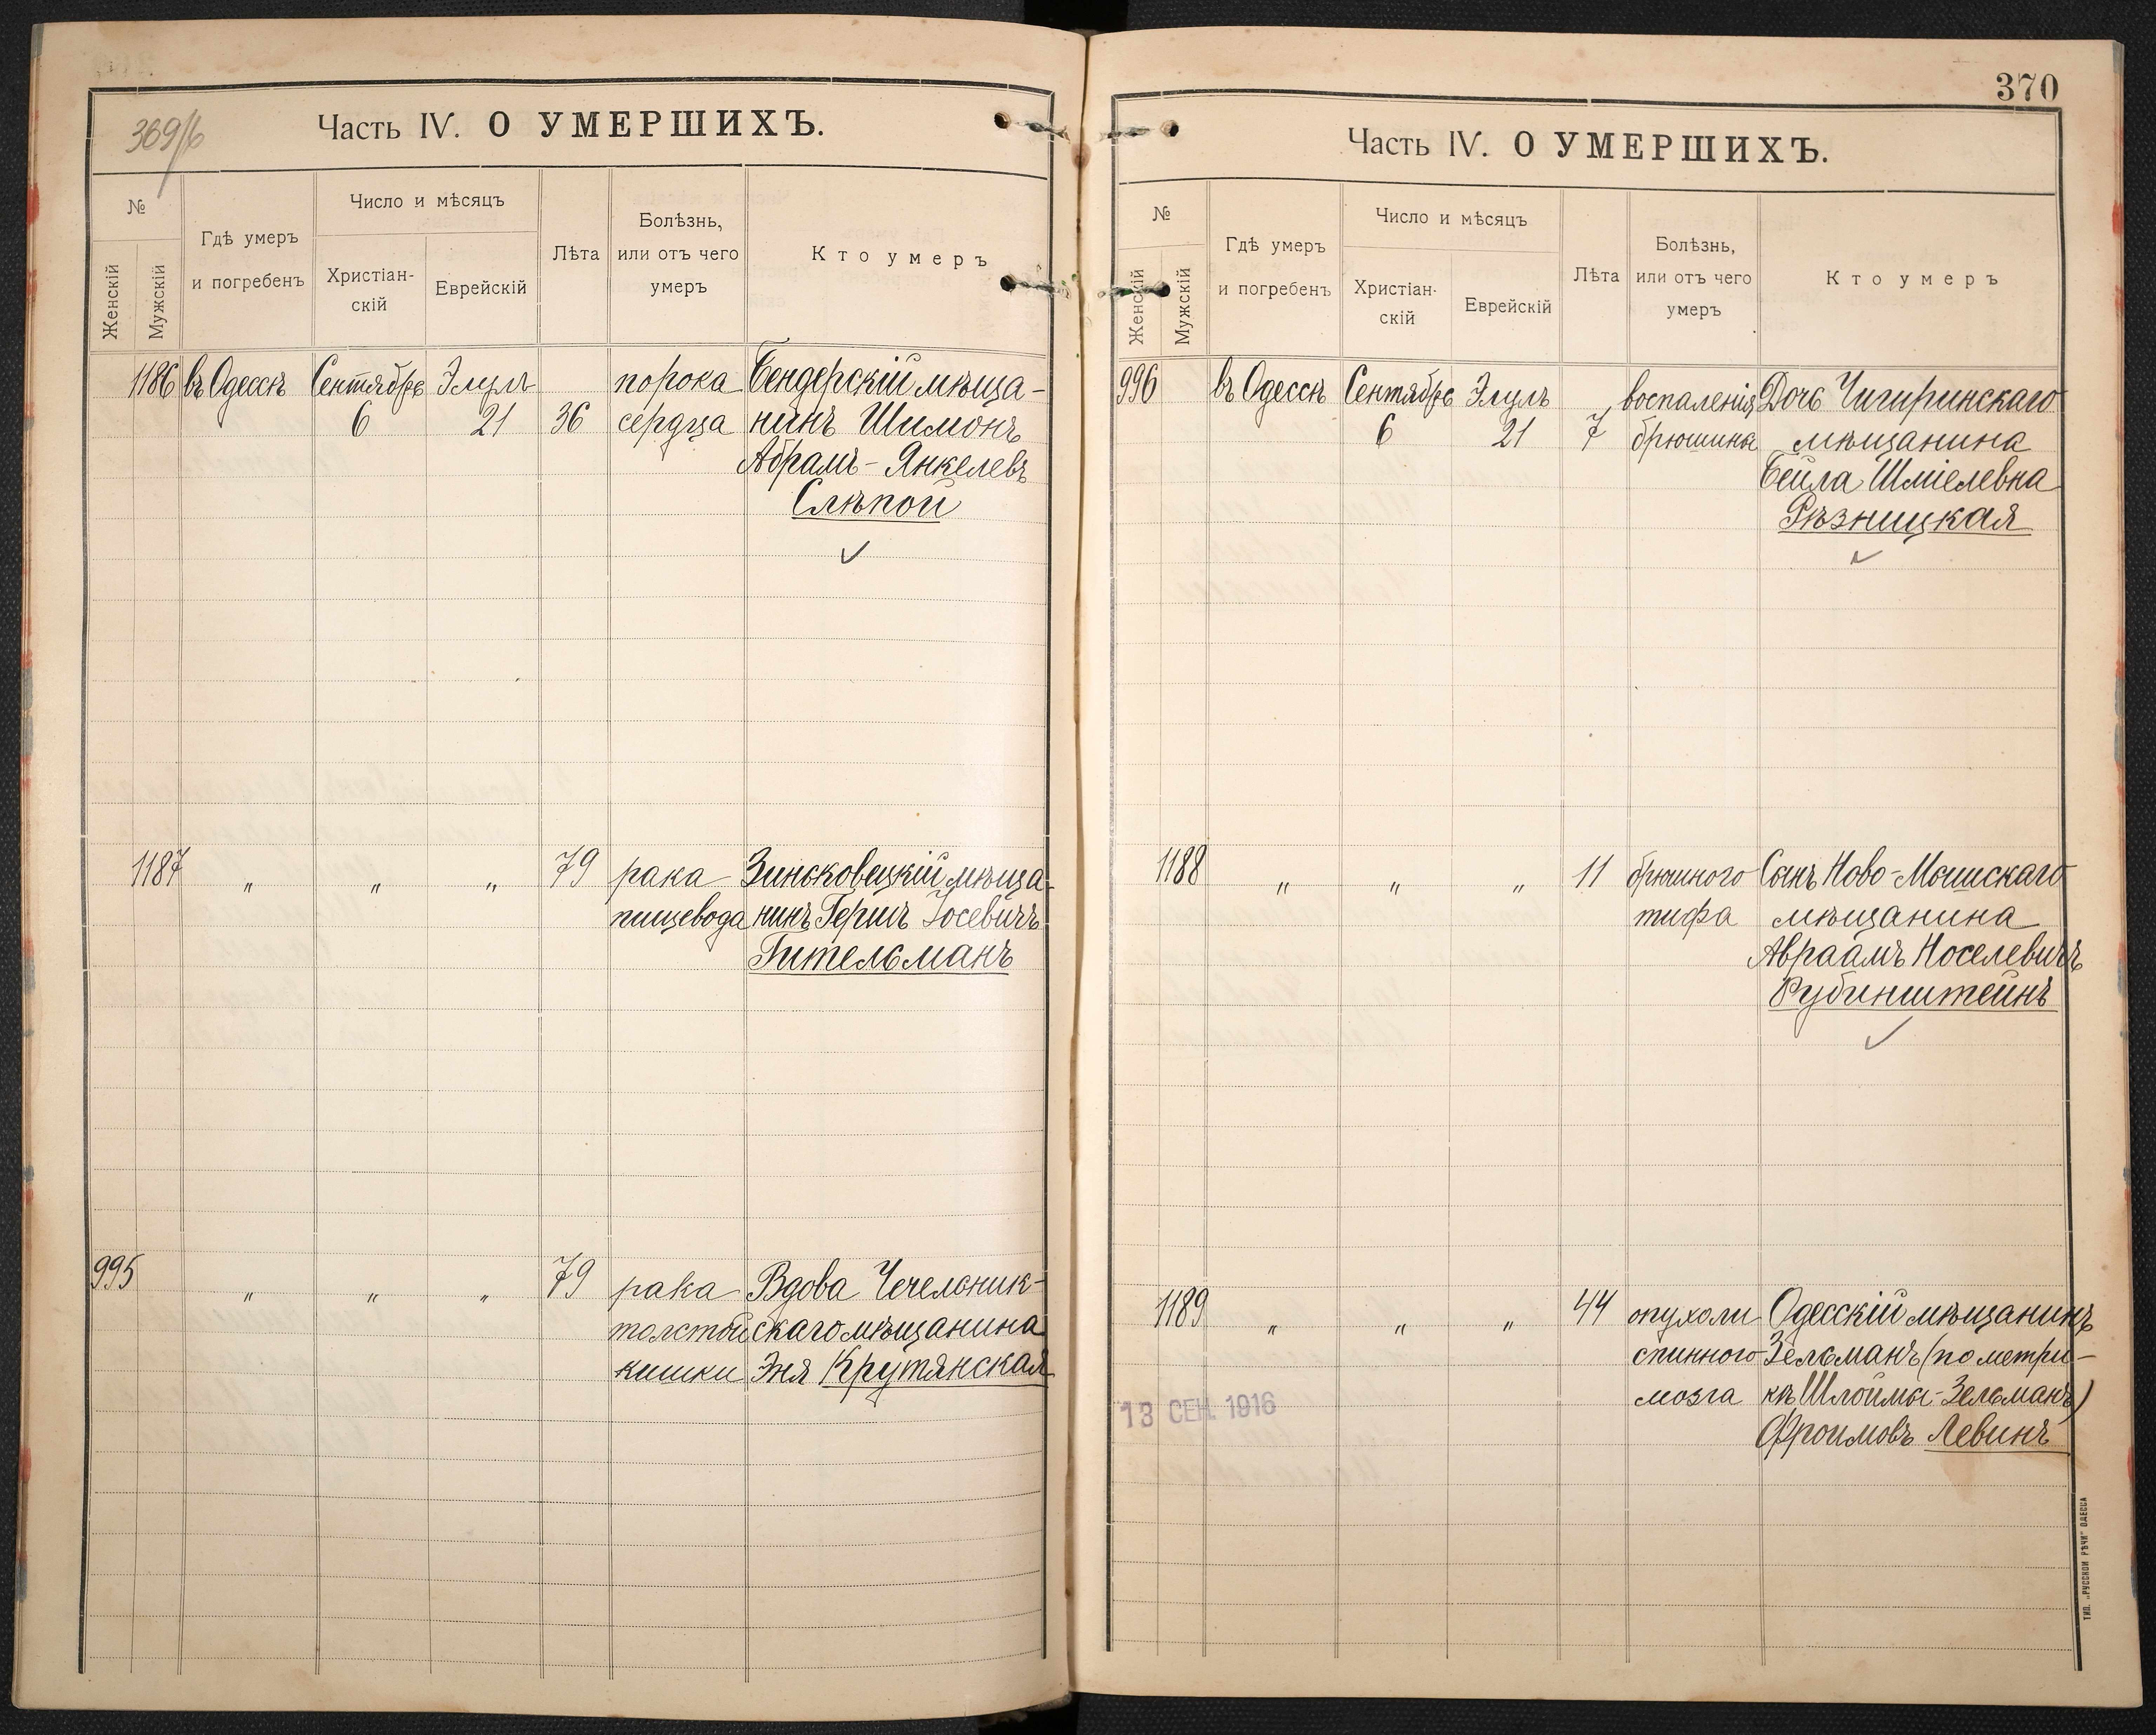 369/б
Часть IV. О УМЕРШИХЪ.
№
Женскій
Мужскій
Гдѣ умеръ
и погребенъ
Число и мѣсяцъ
Христіан-
скій
Еврейскій
Лѣта
Болѣзнь,
или отъ чего
умеръ
Кто умеръ
1186 въ Одессѣ Сентябрь Элулъ порока Бендерскій мѣща-
6 21 36 сердца нинъ Шимонъ
Абрамъ-Янкелевъ
Слѣпой
1187 " " " 79 рака Зиньковецкій мѣща-
пищевода нинъ Гершъ Іосевичъ
Гительманъ
995 " " " 79 рака Вдова Чечельник-
толстой скаго мѣщанина
кишки Эня Крутянская
370
Часть IV. О УМЕРШИХЪ.
№
Женскій
Мужскій
Гдѣ умеръ
и погребенъ
Число и мѣсяцъ
Христіан-
скій
Еврейскій
Лѣта
Болѣзнь,
или отъ чего
умеръ
Кто умеръ
996 въ Одессѣ Сентябрь Элулъ воспаленія Дочь Чигиринскаго
6 21 7 брюшины мѣщанина
Бейла Шміелевна
Рѣзницкая
1188 " " " 11 брюшного Сынъ Ново-Мышскаго
тифа мѣщанина
Авраамъ Носелевичъ
Рубинштейнъ
1189 " " " 44 опухоли Одесскій мѣщанинъ
спинного Зельманъ (по метри-
мозга кѣ Шлойма-Зельманъ)
Фроимовъ Левинъ
13 СЕН. 1916
ТИП. „РУССКОЙ РѢЧИ" ОДЕССА